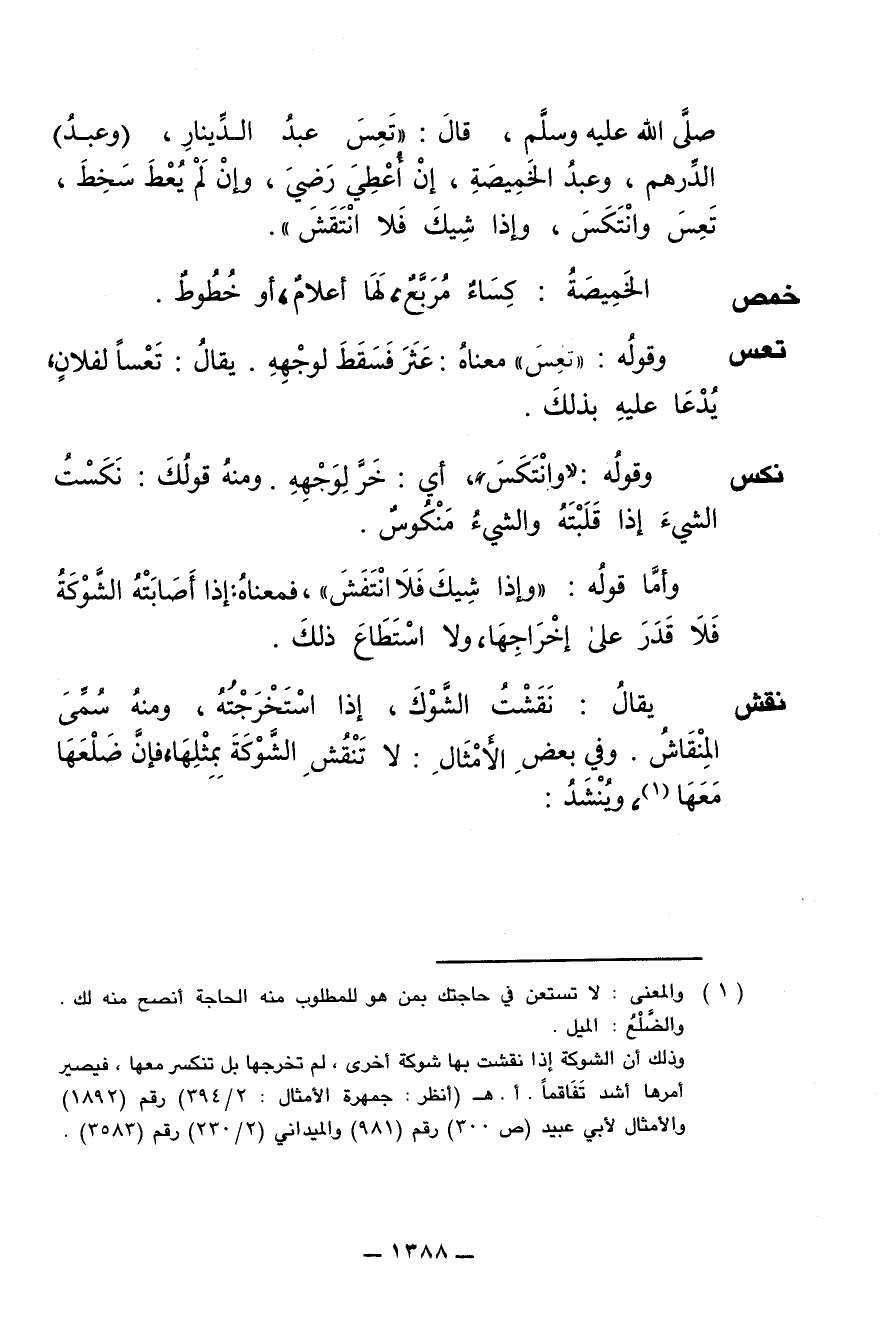 صلَّى الله عليه وسلَّم ، قالَ : «تَعِسَ عبدُ الـدِّينارِ ، (وعبـدُ)
الدِّرهم ، وعبدُ الخَمِيصَةِ ، إنْ أُعْطِيَ رَضيَ ، وإنْ لَمْ يُعْطَ سَخِطَ ،
تَعِسَ وانْتَكَسَ ، وإذا شِيكَ فَلا انْتَقَشَ».
خمص الخَمِيصَةُ : كِسَاءٌ مُرَبَّعٌ، لَهَا أعلامٌ، أو خُطُوطٌ .
تعس وقولُه : «تَعِسَ» معناهُ : عَثَرَ فَسَقَطَ لوجْهِهِ . يقالُ : تَعْساً لفلانٍ،
يُدْعَا عليهِ بذلكَ .
نكس وقولُه : «وانْتَكَسَ»، أي : خَرَّ لِوَجْهِهِ . ومنهُ قولُكَ : نَكَسْتُ
الشيءَ إذا قَلَبْتَهُ والشيءُ مَنْكُوسٌ .
وأمَّا قولُه : «وإذا شِيكَ فَلَا انْتَقَشَ» ، فمعناهُ: إذا أَصَابَتْهُ الشَّوْكَةُ
فَلَا قَدَرَ علىٰ إخْرَاجِهَا، ولا اسْتَطَاعَ ذلكَ .
نقش يقالُ : نَقَشْتُ الشَّوْكَ ، إذا اسْتَخْرَجْتُهُ ، ومنهُ سُمِّىَ
المِنْقَاشُ . وفي بعضِ الأَمْثَالِ : لا تَنْقُشِ الشَّوْكَةَ بِمِثْلِهَا، فإنَّ ضَلْعَهَا
مَعَهَا (١)، ويُنْشَدُ :
(١) والمعنى : لا تستعن في حاجتك بمن هو للمطلوب منه الحاجة أنصح منه لك .
والضَّلْعُ : الميل .
وذلك أن الشوكة إذا نقشت بها شوكة أخرى ، لم تخرجها بل تنكسر معها ، فيصير
أمرها أشد تَفَاقماً . أ . هـ (أنظر : جمهرة الأمثال : ٣٩٤/٢) رقم (١٨٩٢)
والأمثال لأبي عبيد (ص ٣٠٠) رقم (٩٨١) والميداني (٢٣٠/٢) رقم (٣٥٨٣) .
– ١٣٨٨ –